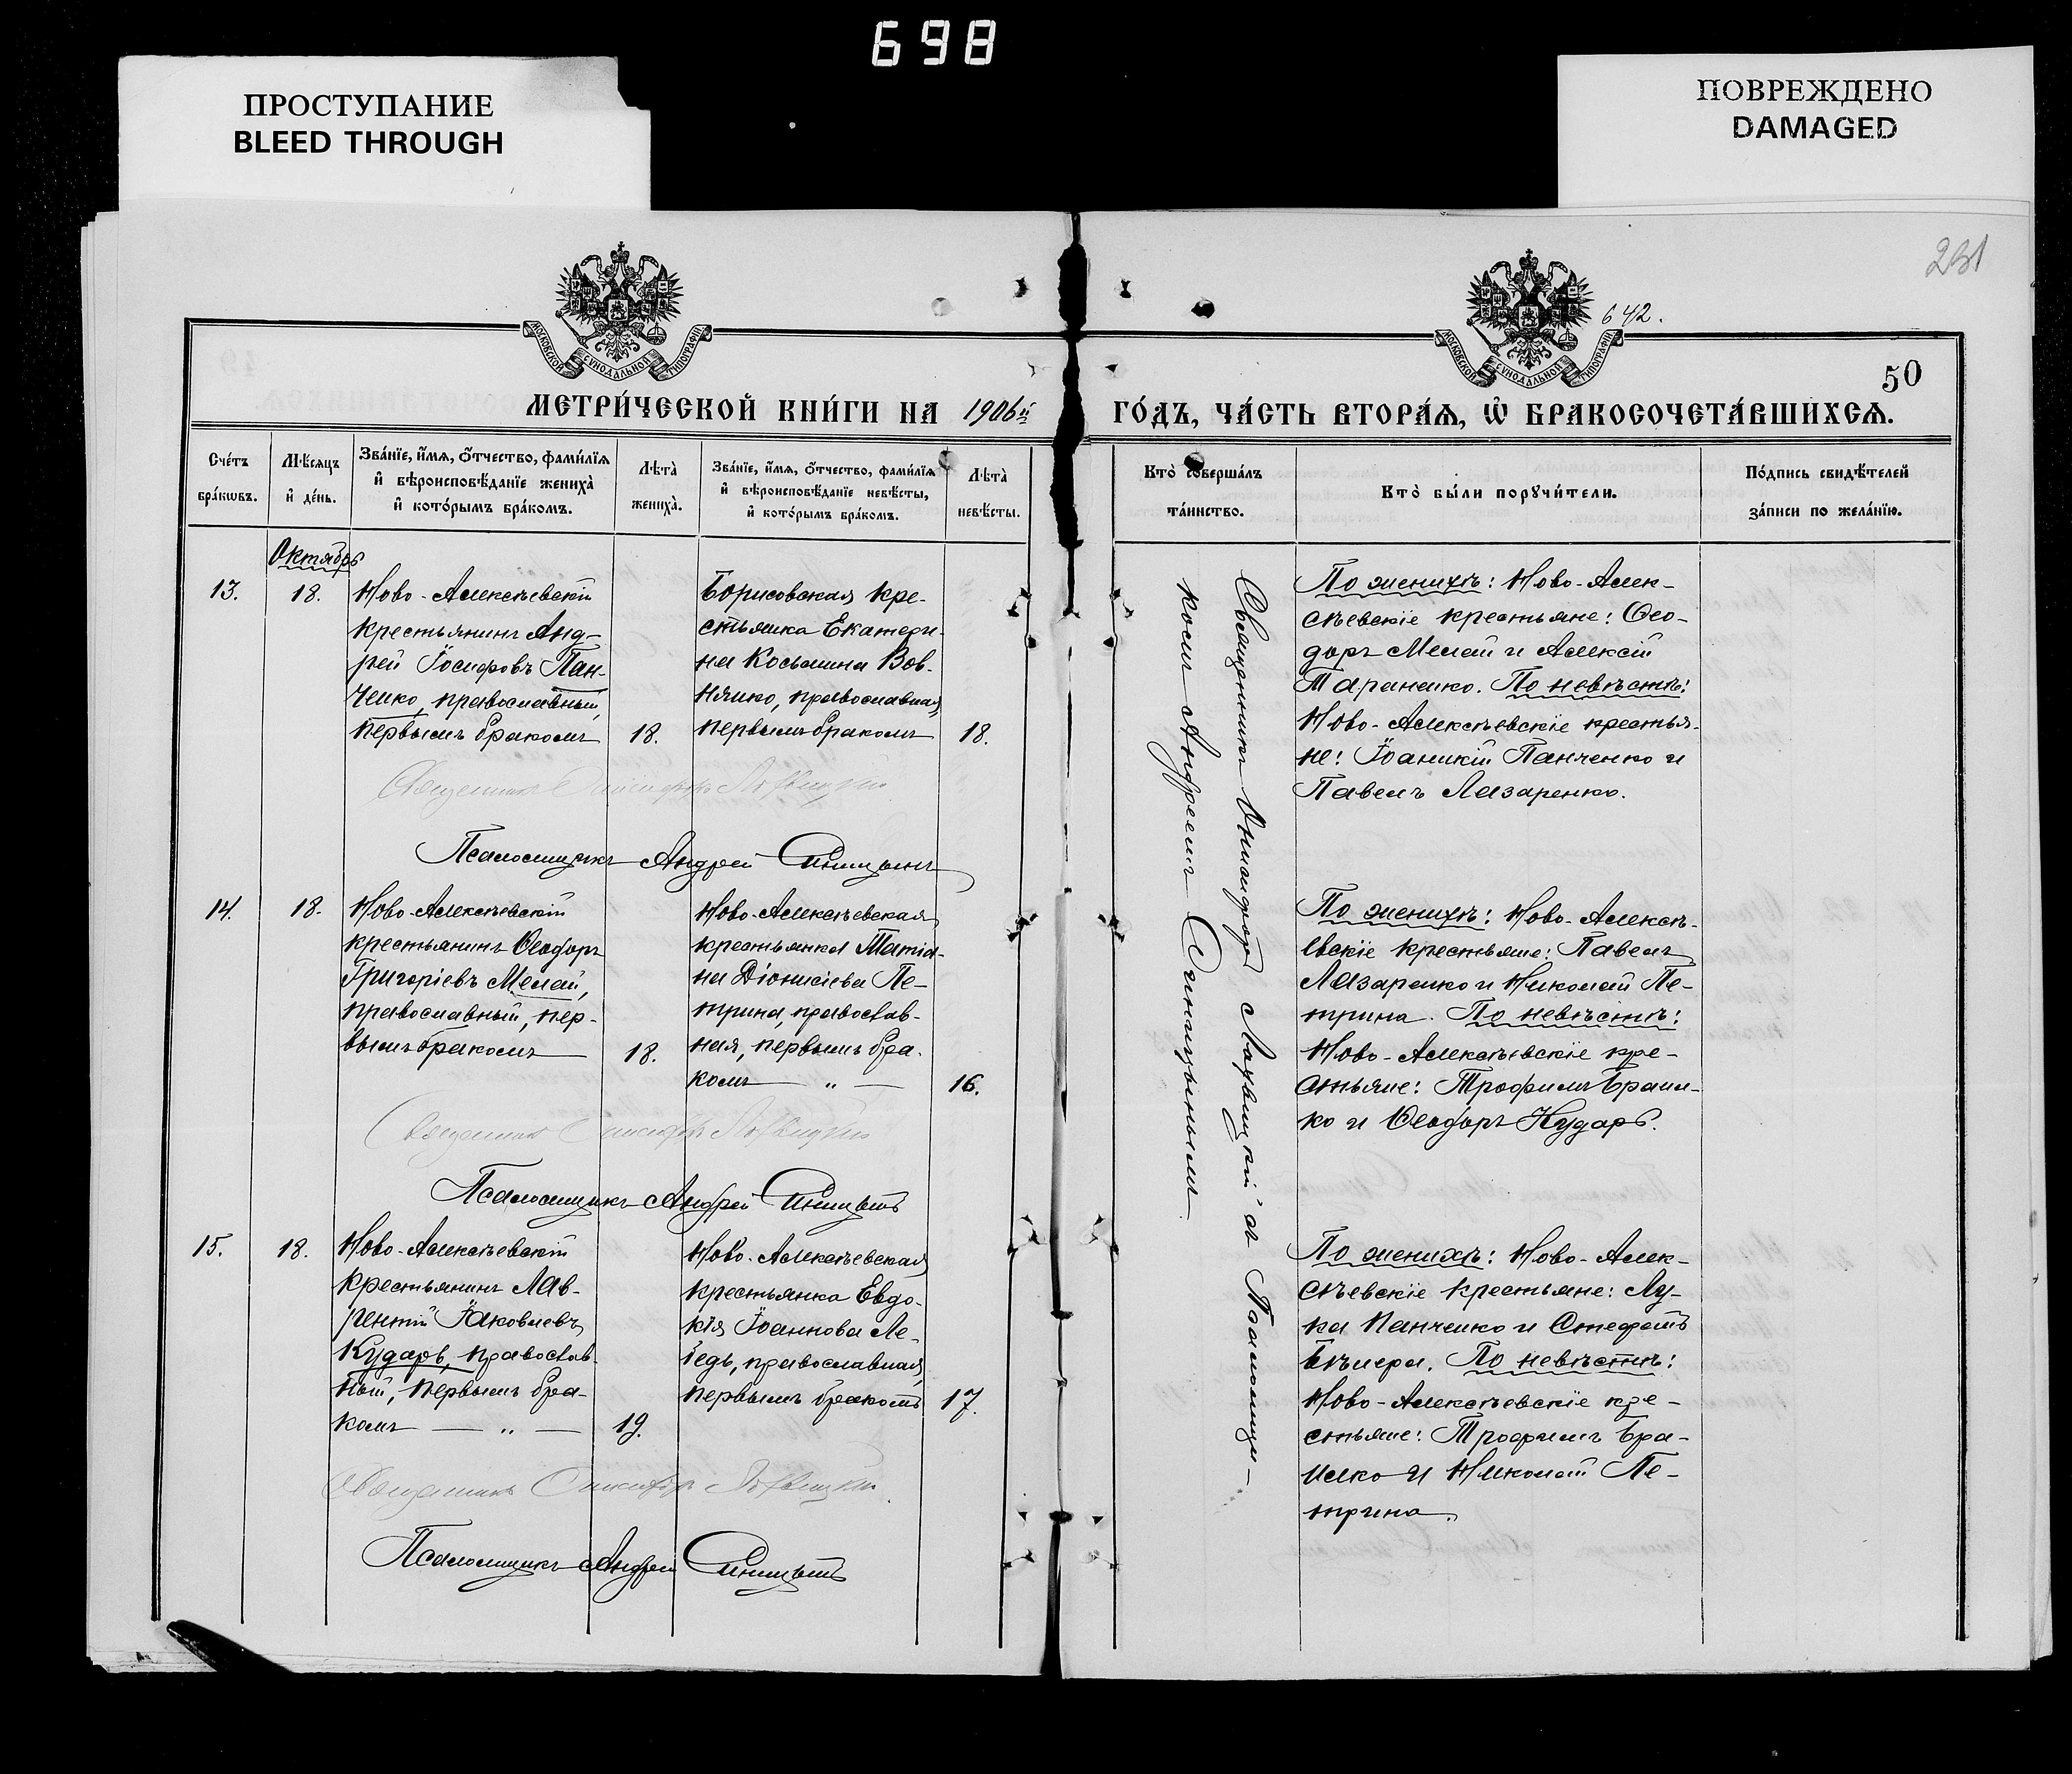 698
ПРОСТУПАНИЕ
BLEED THROUGH
ПОВРЕЖДЕНО
DAMAGED
231
642.
50
МОСКОВСКОЙ СУНОДАЛЬНОЙ ТИПОГРАФІИ
МОСКОВСКОЙ СУНОДАЛЬНОЙ ТИПОГРАФІИ
МЕТРИ́ЧЕСКОЙ КНИ́ГИ НА 1906й ГО́ДЪ, ЧА́СТЬ ВТОРА́Я, Ѡ҆ БРАКОСОЧЕТА́ВШИХСЯ.
Сче́тъ бра́кѡвъ.
Мѣ́сяцъ и҆ де́нь.
Зва́нїе, и҆́мя, ѻ҆́тчество, фами́лїя и҆ вѣроисповѣ́данїе жениха̀ и҆ кото́рымъ бра́комъ.
Лѣта̀ жениха̀.
Зва́нїе, и҆́мя, ѻ҆́тчество, фами́лїя и҆ вѣроисповѣ́данїе невѣ́сты, и҆ кото́рымъ бра́комъ.
Лѣта̀ невѣ́сты.
Кто̀ соверша́лъ та́инство.
Кто̀ бы́ли порꙋчи́тели.
По́дпись свидѣ́телей за́писи по жела́нїю.
Октябрь
13.
18.
Ново-Алексѣевскій
крестьянинъ Анд-
рей Іосифовъ Пан-
ченко, православный,
первымъ бракомъ
18.
Борисовская кре-
стьянка Екатери-
на Косьмина Вов-
нянко, православная,
первымъ бракомъ
18.
По женихѣ: Ново-Алек-
сѣевскіе крестьяне: Ѳео-
доръ Мелай и Алексій
Тараненко. По невѣстѣ:
Ново-Алексѣевскіе крестья-
не: Іоаникій Панченко и
Павелъ Лазаренко.
Священникъ Онисифоръ Лохвицкій
Псаломщикъ Андрей Синицынъ
14.
18.
Ново-Алексѣевскій
крестьянинъ Ѳеодоръ
Григоріевъ Мелай,
православный, пер-
вымъ бракомъ
18.
Ново-Алексѣевская
крестьянка Татіа-
на Діонисіева Пе-
трина, православ-
ная, первымъ бра-
комъ — „ —
16.
По женихѣ: Ново-Алексѣ-
евскіе крестьяне: Павелъ
Лазаренко и Николай Пе-
трина. По невѣстѣ:
Ново-Алексѣевскіе кре-
стьяне: Трофимъ Браил-
ко и Ѳеодоръ Кударь.
Священникъ Онисифоръ Лохвицкій
Псаломщикъ Андрей Синицынъ
15.
18.
Ново-Алексѣевскій
крестьянинъ Лав-
рентій Іаковлевъ
Кударь, православ-
ный, первымъ бра-
комъ — „ —
19.
Ново-Алексѣевская
крестьянка Евдо-
кія Іоаннова Ле-
бедь, православная,
первымъ бракомъ
17.
По женихѣ: Ново-Алек-
сѣевскіе крестьяне: Лу-
ка Панченко и Стефанъ
По невѣстѣ:
Ново-Алексѣевскіе кре-
стьяне: Трофимъ Бра-
илко и Николай Пе-
трина.
Священникъ Онисифоръ Лохвицкій
Псаломщикъ Андрей Синицынъ
Священникъ Онисифоръ Лохвицкій съ Псаломщи-
комъ Андреемъ Синицынымъ.